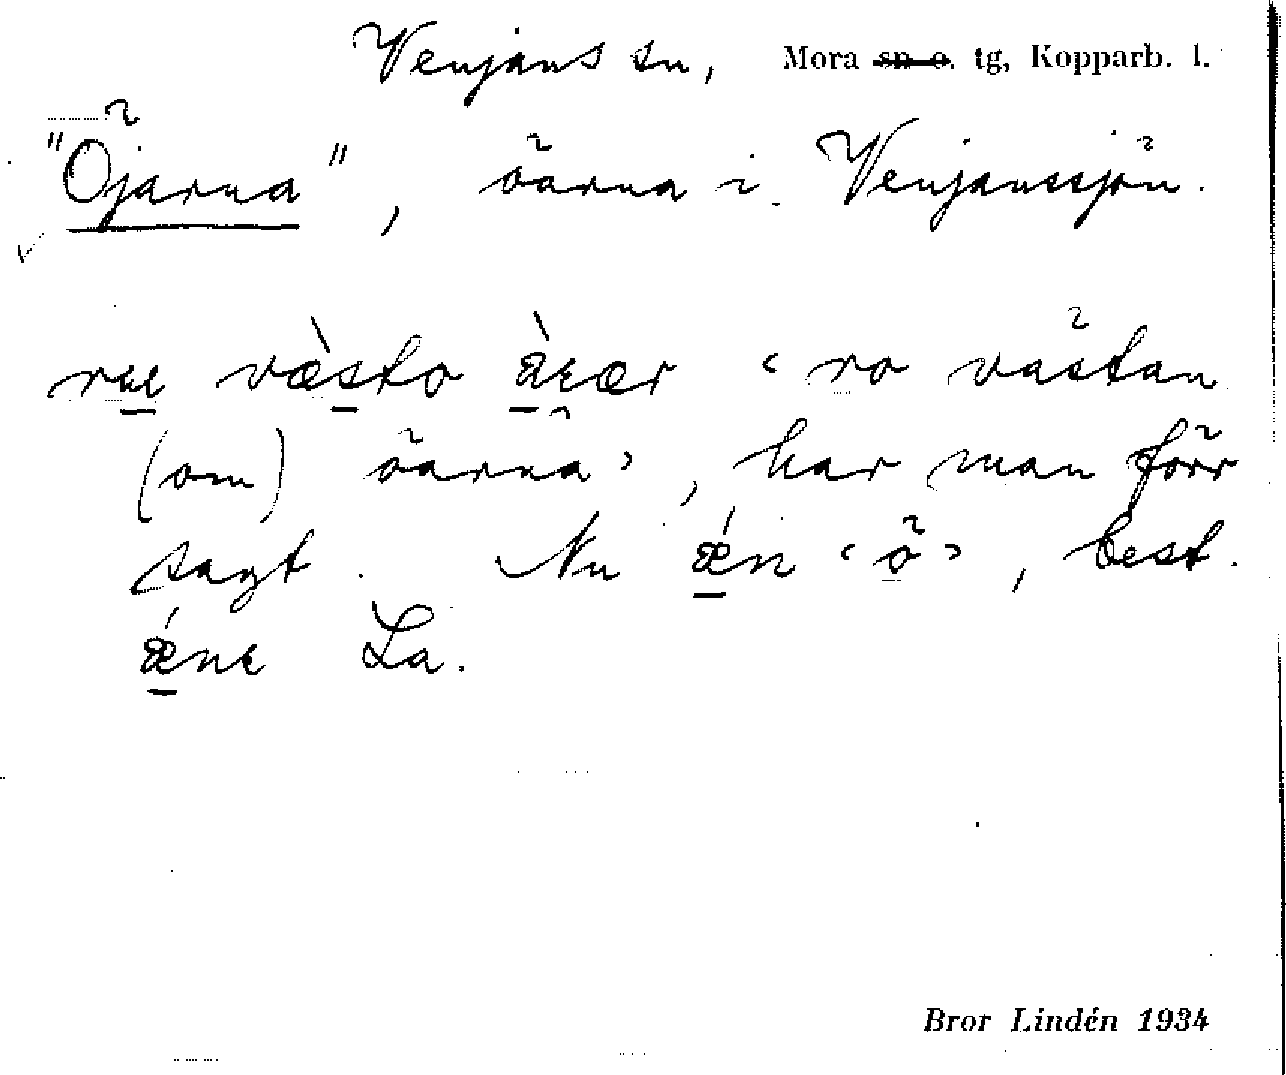 Venjans sn, Mora sn o. tg, Kopparb. l.
"Öjarna", öarna i Venjanssjön.
væsto ‹ro västan
(om) öarna›, har man förr
sagt. Nu ǽn ‹ö›, best.
ǽnɛ La.
Bror Lindén 1934